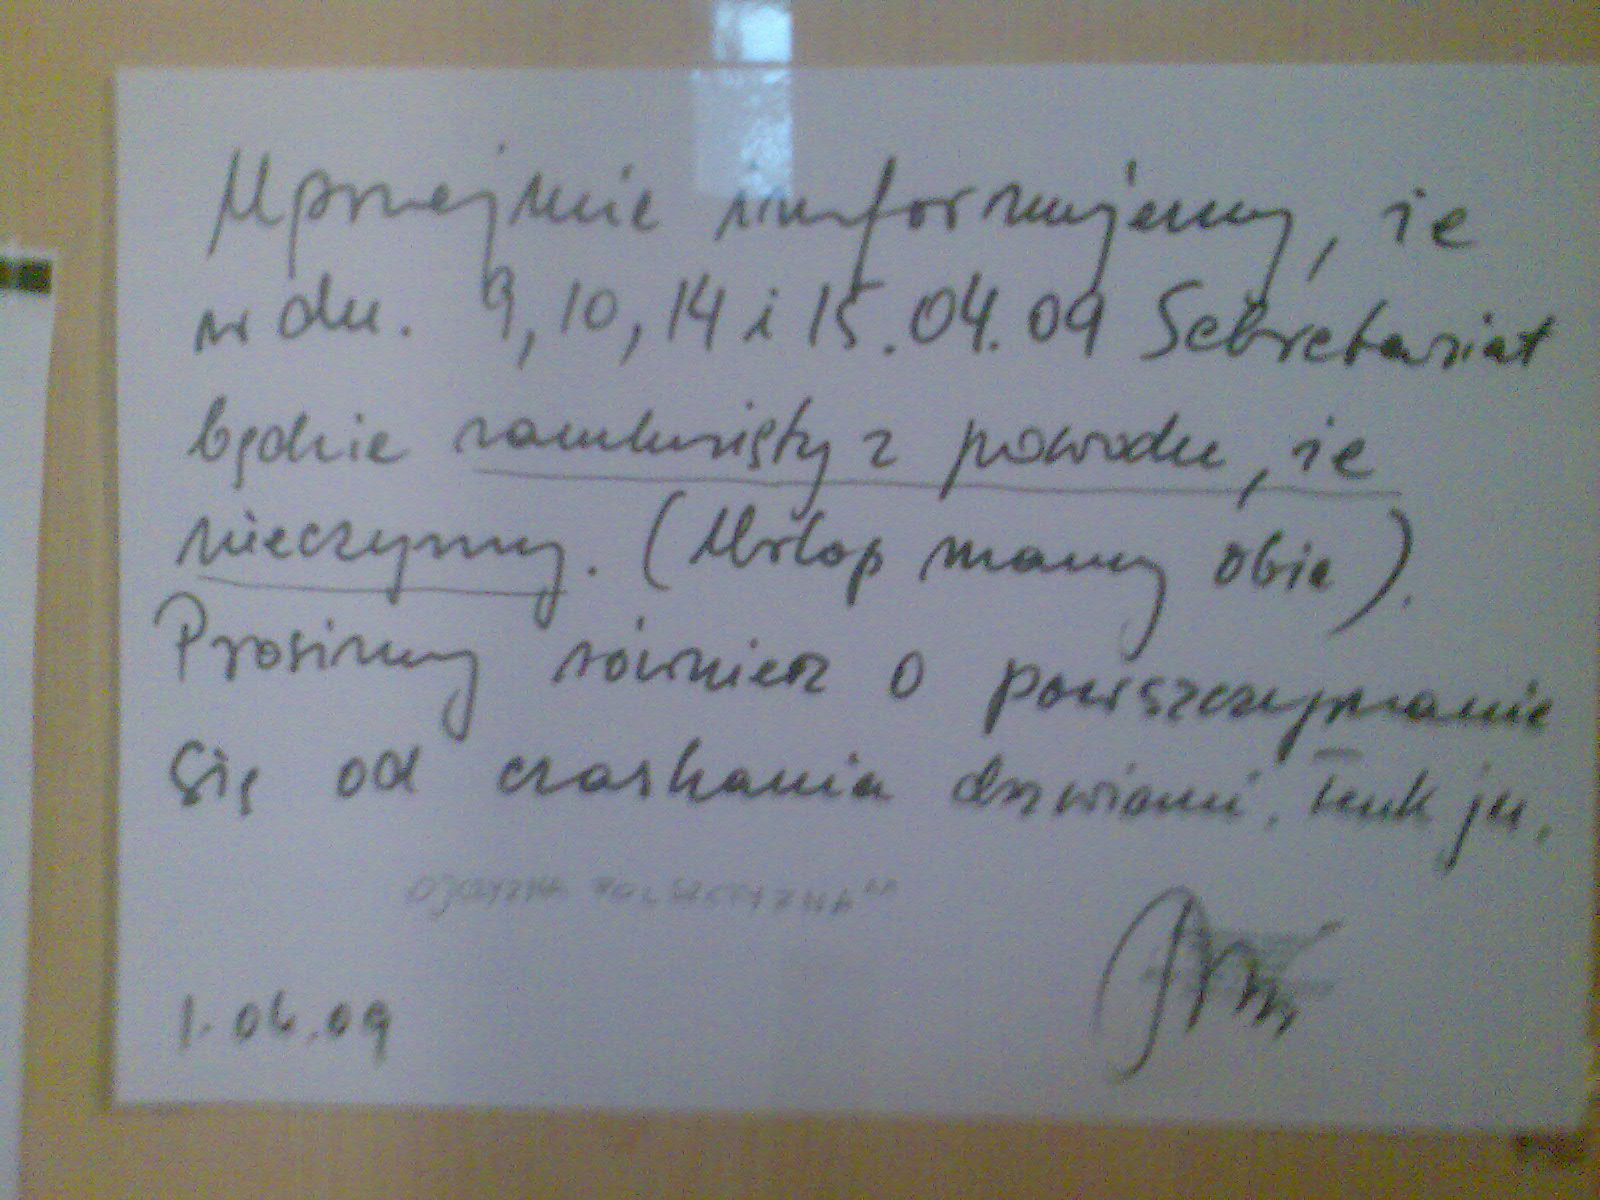 Uprzejmie informujemy, że
w dn. 9, 10, 14 i 15.04.09 Sekretariat
będzie zamknięty z powodu, że
nieczynny. (Urlop mamy obie).
Prosimy również o powszczymanie
się od czaskania drzwiami. Tenk ju.
OJCZYZNA POLSZCZYZNA
1.04.09